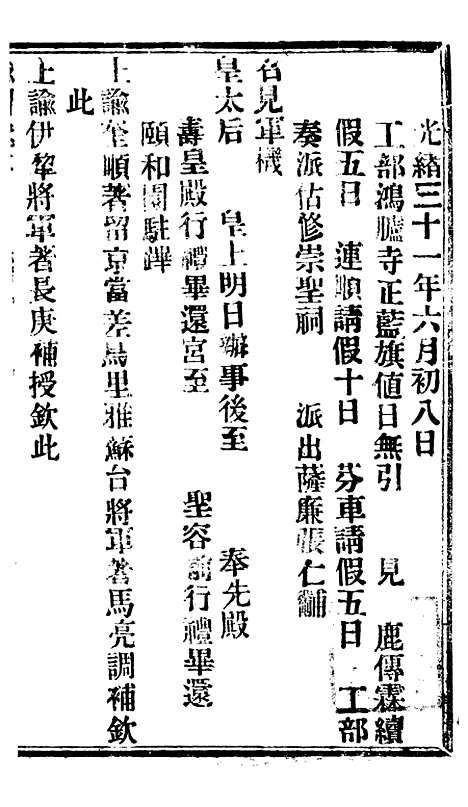 光緒三十一年六月初八日
工部鴻臚寺正藍旗値日無引 見 鹿傳霖續
假五日 連順請假十日 芬車請假五日 工部
奏派估修崇聖祠 派出薩廉張仁黼
召見軍機
皇太后 皇上明日辦事後至 奉先殿
壽皇殿行禮畢還宮至 聖容前行禮畢還
頤和園駐蹕
上諭奎順著留京當差烏里雅蘇台將軍著馬亮調補欽
此
上諭伊犂將軍著長庚補授欽此